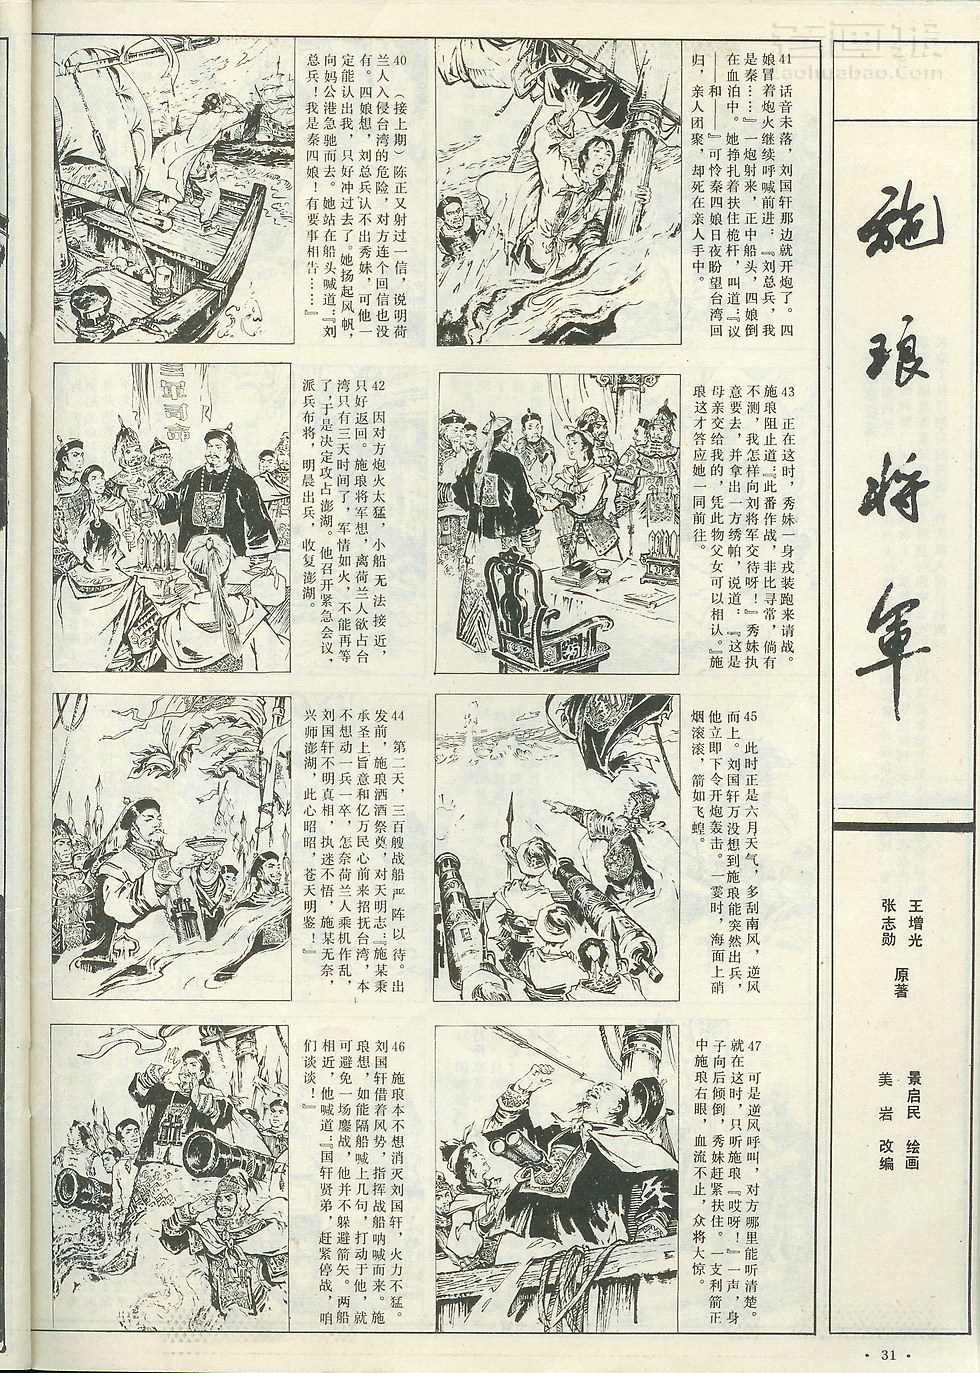 施琅将军
王增光 原著
张志勋
景启民 绘画
美岩 改编
40 （接上期）陈正又射过一信，说明荷
兰人入侵台湾的危险，对方连个回信也没
有。四娘想，刘总兵认不出秀妹，可他一
定能认出我，只好冲过去了。她扬起风帆，
向妈公港急驰而去。她站在船头喊道：『刘
总兵！我是秦四娘！有要事相告……』
41 话音未落，刘国轩那边就开炮了。四
娘冒着炮火继续呼喊前进：『刘总兵，我
是秦……』一炮射来，正中船头，四娘倒
在血泊中。她挣扎着扶住桅杆，叫道：『议
——和——』可怜秦四娘日夜盼望台湾回
归，亲人团聚，却死在亲人手中。
42 因对方炮火太猛，小船无法接近，
只好返回。施琅将军想，离荷兰人欲占台
湾只有三天时间了，军情如火，不能再等
了，于是决定攻占澎湖。他召开紧急会议，
派兵布将，明晨出兵，收复澎湖。
三军司命
43 正在这时，秀妹一身戎装跑来请战。
施琅阻止道：『此番作战，非比寻常，倘有
不测，我怎样向刘将军交待呀！』秀妹执
意要去，并拿出一方绣帕，说道：『这是
母亲交给我的，凭此物父女可以相认。』施
琅这才答应她一同前往。
44 第二天，三百艘战船严阵以待。出
发前，施琅洒酒祭奠，对天明志：『施某秉
承圣上旨意和亿万民心前来招抚台湾，本
不想动一兵一卒，怎奈荷兰人乘机作乱，
刘国轩不明真相，执迷不悟，施某无奈，
兴师澎湖，此心昭昭，苍天明鉴！』
45 此时正是六月天气，多刮南风，逆风
而上。刘国轩万没想到施琅能突然出兵，
他立即下令开炮轰击。一霎时，海面上硝
烟滚滚，箭如飞蝗。
46 施琅本不想消灭刘国轩，火力不猛。
刘国轩借着风势，指挥战船呐喊而来。施
琅想，如能隔船喊上几句，打动于他，就
可避免一场鏖战，他并不躲避箭矢。两船
相近，他喊道：『国轩贤弟，赶紧停战，咱
们谈谈！』
47 可是逆风呼叫，对方哪里能听清楚。
就在这时，只听施琅『哎呀！』一声，身
子向后倾倒，秀妹赶紧扶住。一支利箭正
中施琅右眼，血流不止，众将大惊。
· 31 ·